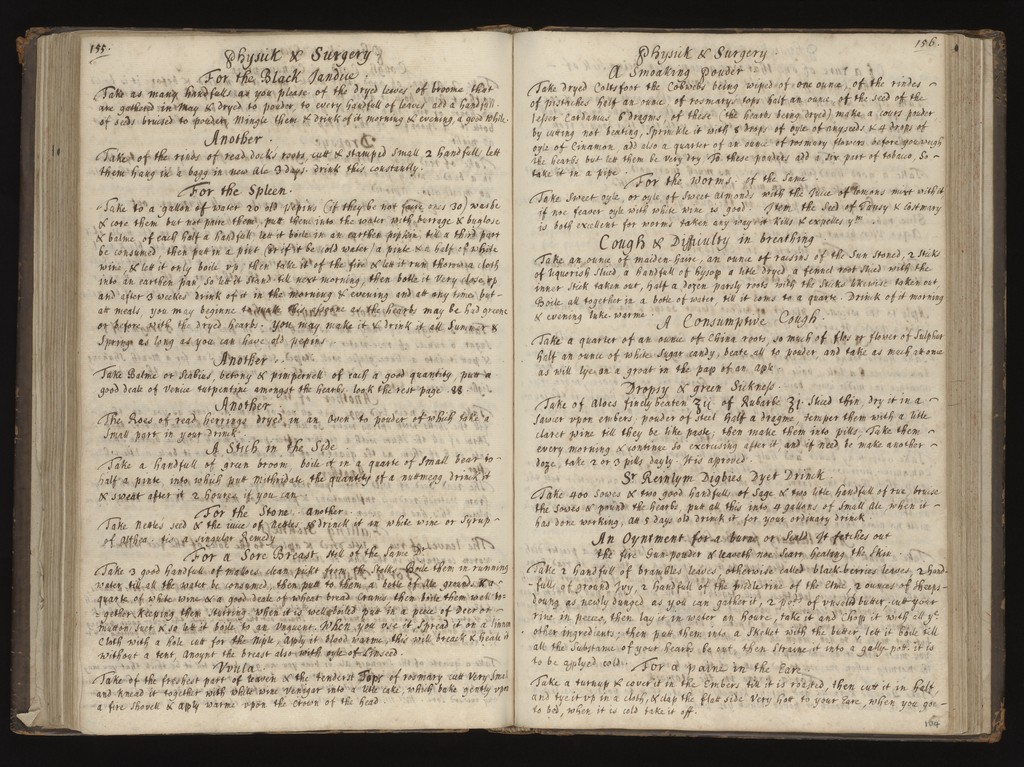 155.
Physick & Surgery
For the Black Jandice.
Take as many handfulls as you please of the dryed leaves of broome that
are gathered in May & dryed to pouder, to every handfull of leaves add a handfull
of seeds bruised to pouder, Mingle them & drink of it morning & evening a good while.
Another.
Take of the rinds of read docks roots cutt & stamped small 2 handfull lett
them hang in a bagg in new Ale 3 days. drink this constantly.
For the Spleen.
Take to a gallon of water 20 old pepins (if they be not faire ones 30) washe
& core them but not paire them, putt them into the water with borrage & buglose
& balme of each half a handfull lett it boile in an earthen pipkin till a third part
be consumed, then putt in a pint (or if it be cold water) a pinte & a half of white
wine, & lett it only boile up, then take it of the fire & let it run thorow a cloth
into an earthen pan, So lett it stand till next morning, then botle it very close up
and after 3 weekes drink of it in the morning & evening and att any time but
att meals. you may beginne to as the hearbs may be had greene
or before with the dryed hearbs. you may make it & drink it all Summer &
Spring as long as you can have old pepins
Another.
Take Balme or Scabius, betony & pimpernell of each a good quantity, putt a
good deale of Venice turpentine amongst the hearbs. look the rest page 88.
Another
The Roes of read herrings dryed in an Oven to pouder of which take a
small part in your drink.
A Stich in the Side
Take a handfull of green broom, boile it in a quarte of small beer to
half a pinte into which putt Mithridate the quantity of a nuttmegg, drink it
& sweat after it 2 houres if you can
For the Stone. another.
Take Nettles seed & the iuice of nettles & drinck it in white wine or Syrup
of Althea. tis a singular Remedy
For a Sore Breast, still of the Same Dr
Take 3 good handfull of mallows clean pickt from the stalks, Boile them in running
water till all the water be consumed, then putt to them a botle of Ale grounds & a
quarte of white wine & a good deale of wheat bread Crums then boile them well to-
gether Keeping them sturring when it is well boiled put in a peice of Deer or
mutton suet & so lett it boile to an Unguent. When you use it Spread it on a linnen
Cloth with a hole cutt for the Niple, apply it blood warme, this will breack & heale it
without a tent. Anoynt the breast also with oyle of Linseed.
Uvula
Take of the freshest part of leaven & the tenderest Tops of rosemary cutt very small
and knead it together with white wine Venigar into a litle cake, which bake gently upon
a fire shovell & apply warme upon the Crown of the head.
156.
Physick & Surgery
A Smoaking pouder
Take Dryed Coltsfoot the Cobwebs being wiped of one ounce, of the rindes
of pistaches half an ounc, of rosemarys tops half an ounce, of the seed of the
lesser Cardamus 6 dragms, of these (the hearbs being dryed) make a cours pouder
by cutting not beating, Sprinkle it with 8 drops of oyle of anyseeds & 4 drops of
oyle of Cinamon, add also a quarter of an ounce of rosemary flowers before you weigh
the hearbs but lett them be very dry. To these pouders add a six part of tobacco, So
take it in a pipe.
For the worms, of the Same
Take Sweet oyle, or oyle of Sweet Almonds with the Juice of lemons mixt with it
if noe feaver oyle with white wine is good. Item the seed of Tansy & Costmary
is both excellent for worms taken any way it kills & expells ym
Cough & Difficulty in breathing
Take an ounce of maiden haire, an ounce of raisins of the Sun stoned, 2 sticks
of liquorish sliced a handfull of hysop a litle dryed, a fennel root sliced with the
inner stick taken out, half a dozen parsly roots with the sticks likewise taken out.
Boile all together in a botle of water, till it coms to a quarte. Drink of it morning
& evening luke warme
A Consumptive Cough.
Take a quarter of an ounce of China roots, so much of flos or flower of Sulpher
half an ounce of white Sugar candy, beate all to pouder and take as much at once
as will lye on a groat in the pap of an aple
Dropsy & green Sickness
Take of Aloes finely beaten ʒij of Rubarbe ʒj sliced thin dry it in a
Sawcer upon embers, pouder of steel half a dragme, temper them with a litle
claret wine till they be like paste, then make them into pills. Take them
every morning & continue so exercising after it and if need be make another
doze, take 2 or 3 pills dayly. It is aproved
Sr Kenelym Digbies Dyet Drink
Take 400 Sowes & two good handfulls of Sage & two litle handfull of rue, bruise
the sowes & pound the hearbs, putt all this into 4 gallons of small Ale when it
has done working, att 5 days old drink it, for your ordinary drink
An Oyntment for a burne or Scald. It fetches out
the fire Gun-pouder & leaveth noe Scarr, healing the Skin
Take 2 handfull of brambles leaves, otherwise called black-berries leaves, 2 hand-
fulls of ground Ivy, 2 handfull of the midle rine of the Elme, 2 ounces of sheeps
doung as newly dunged as you can gather it, 2 of unsalted butter, cutt your
rine in peeces, then lay it in water an houre, take it and Chop it with all ye
other ingredients, then putt them into a Skellet with the butter, lett it boile till
all the Substance of your hearbs be out, then straine it into a gally-pott. it is
to be applyed cold.
For a paine in the Eare
Take a turnup & cover it in the Embers till it is roasted, then cutt it in half
and tye it up in a cloth, & clap the flat side very hott to your Eare, when you goe
to bed, when it is cold take it off.
164